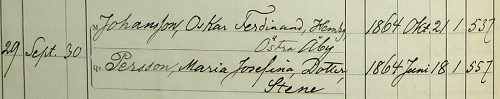 M. Johansson, Oskar Ferdinand, Hemeg, 1864 Okt. 21 1 537
Östra Åby
29 Sept. 30
Q. Persson, Maria Josefina, Dotter, 1864 Juni 18 1 557
Stene